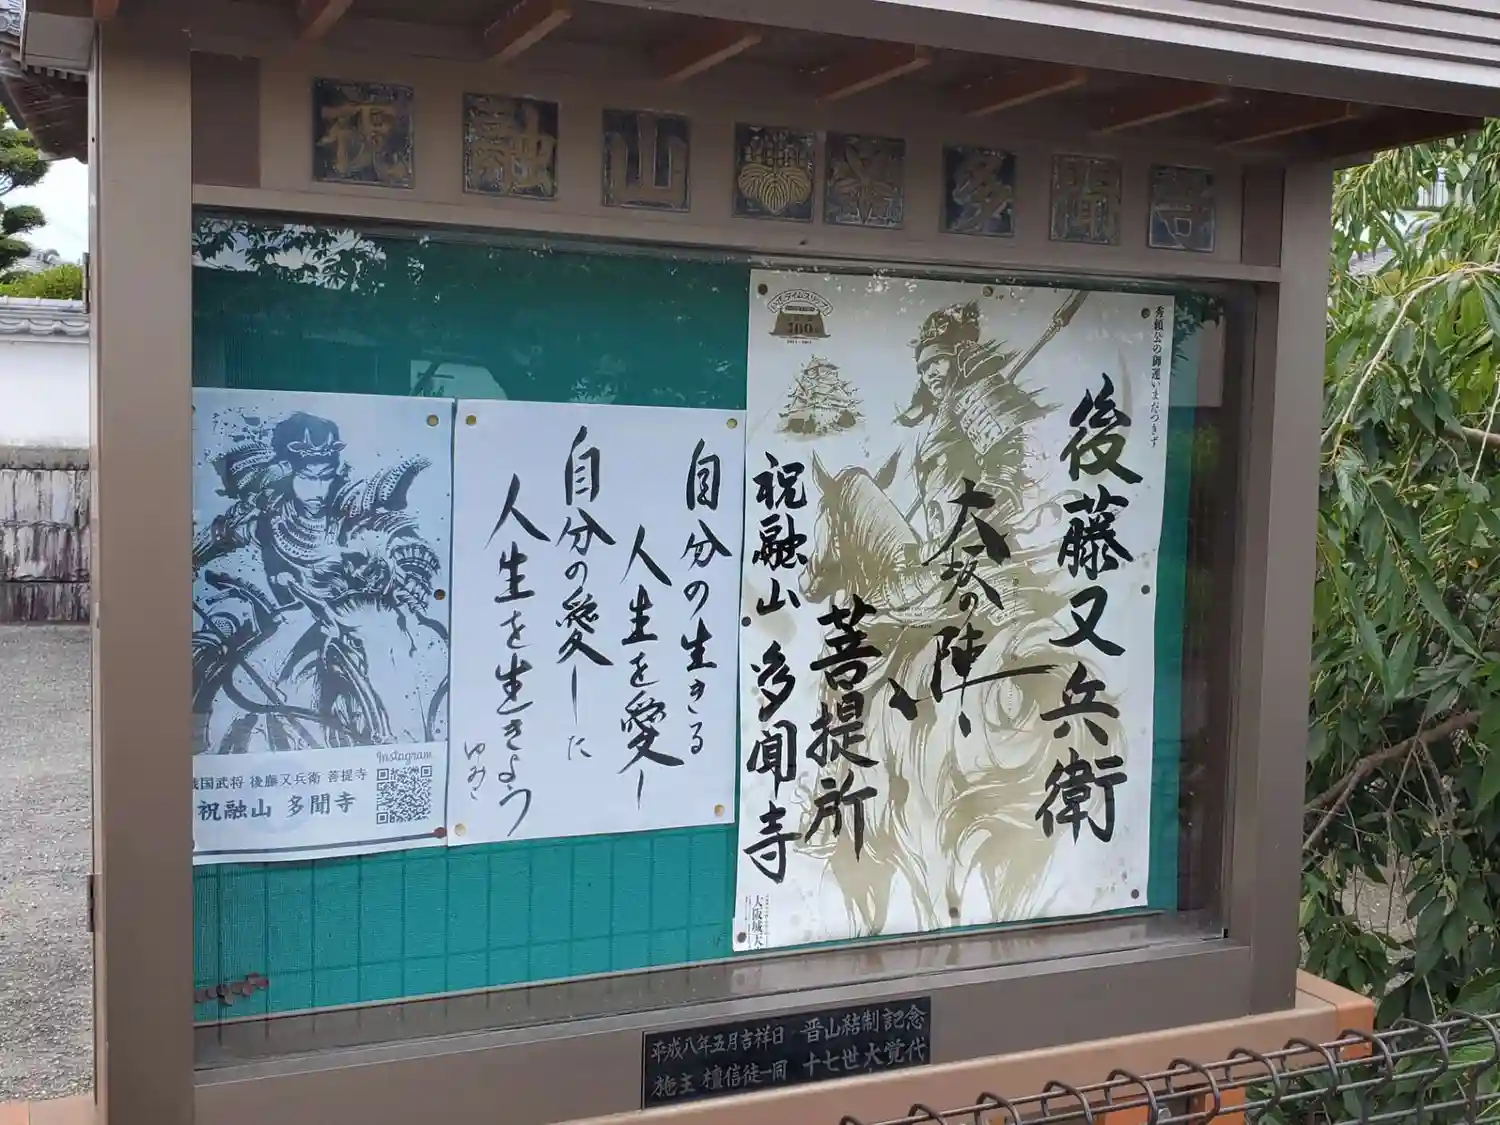 祝融山多聞寺
戦国武将 後藤又兵衛 菩提寺
祝融山 多聞寺
Instagram
自分の生きる
人生を愛し
自分の愛した
人生を生きよう
秀頼公の御運いまだつきず
後藤又兵衛
大坂の陣、
菩提所
祝融山 多聞寺
400
平成八年五月吉祥日 晋山結制記念
施主 檀信徒一同 十七世大覚代